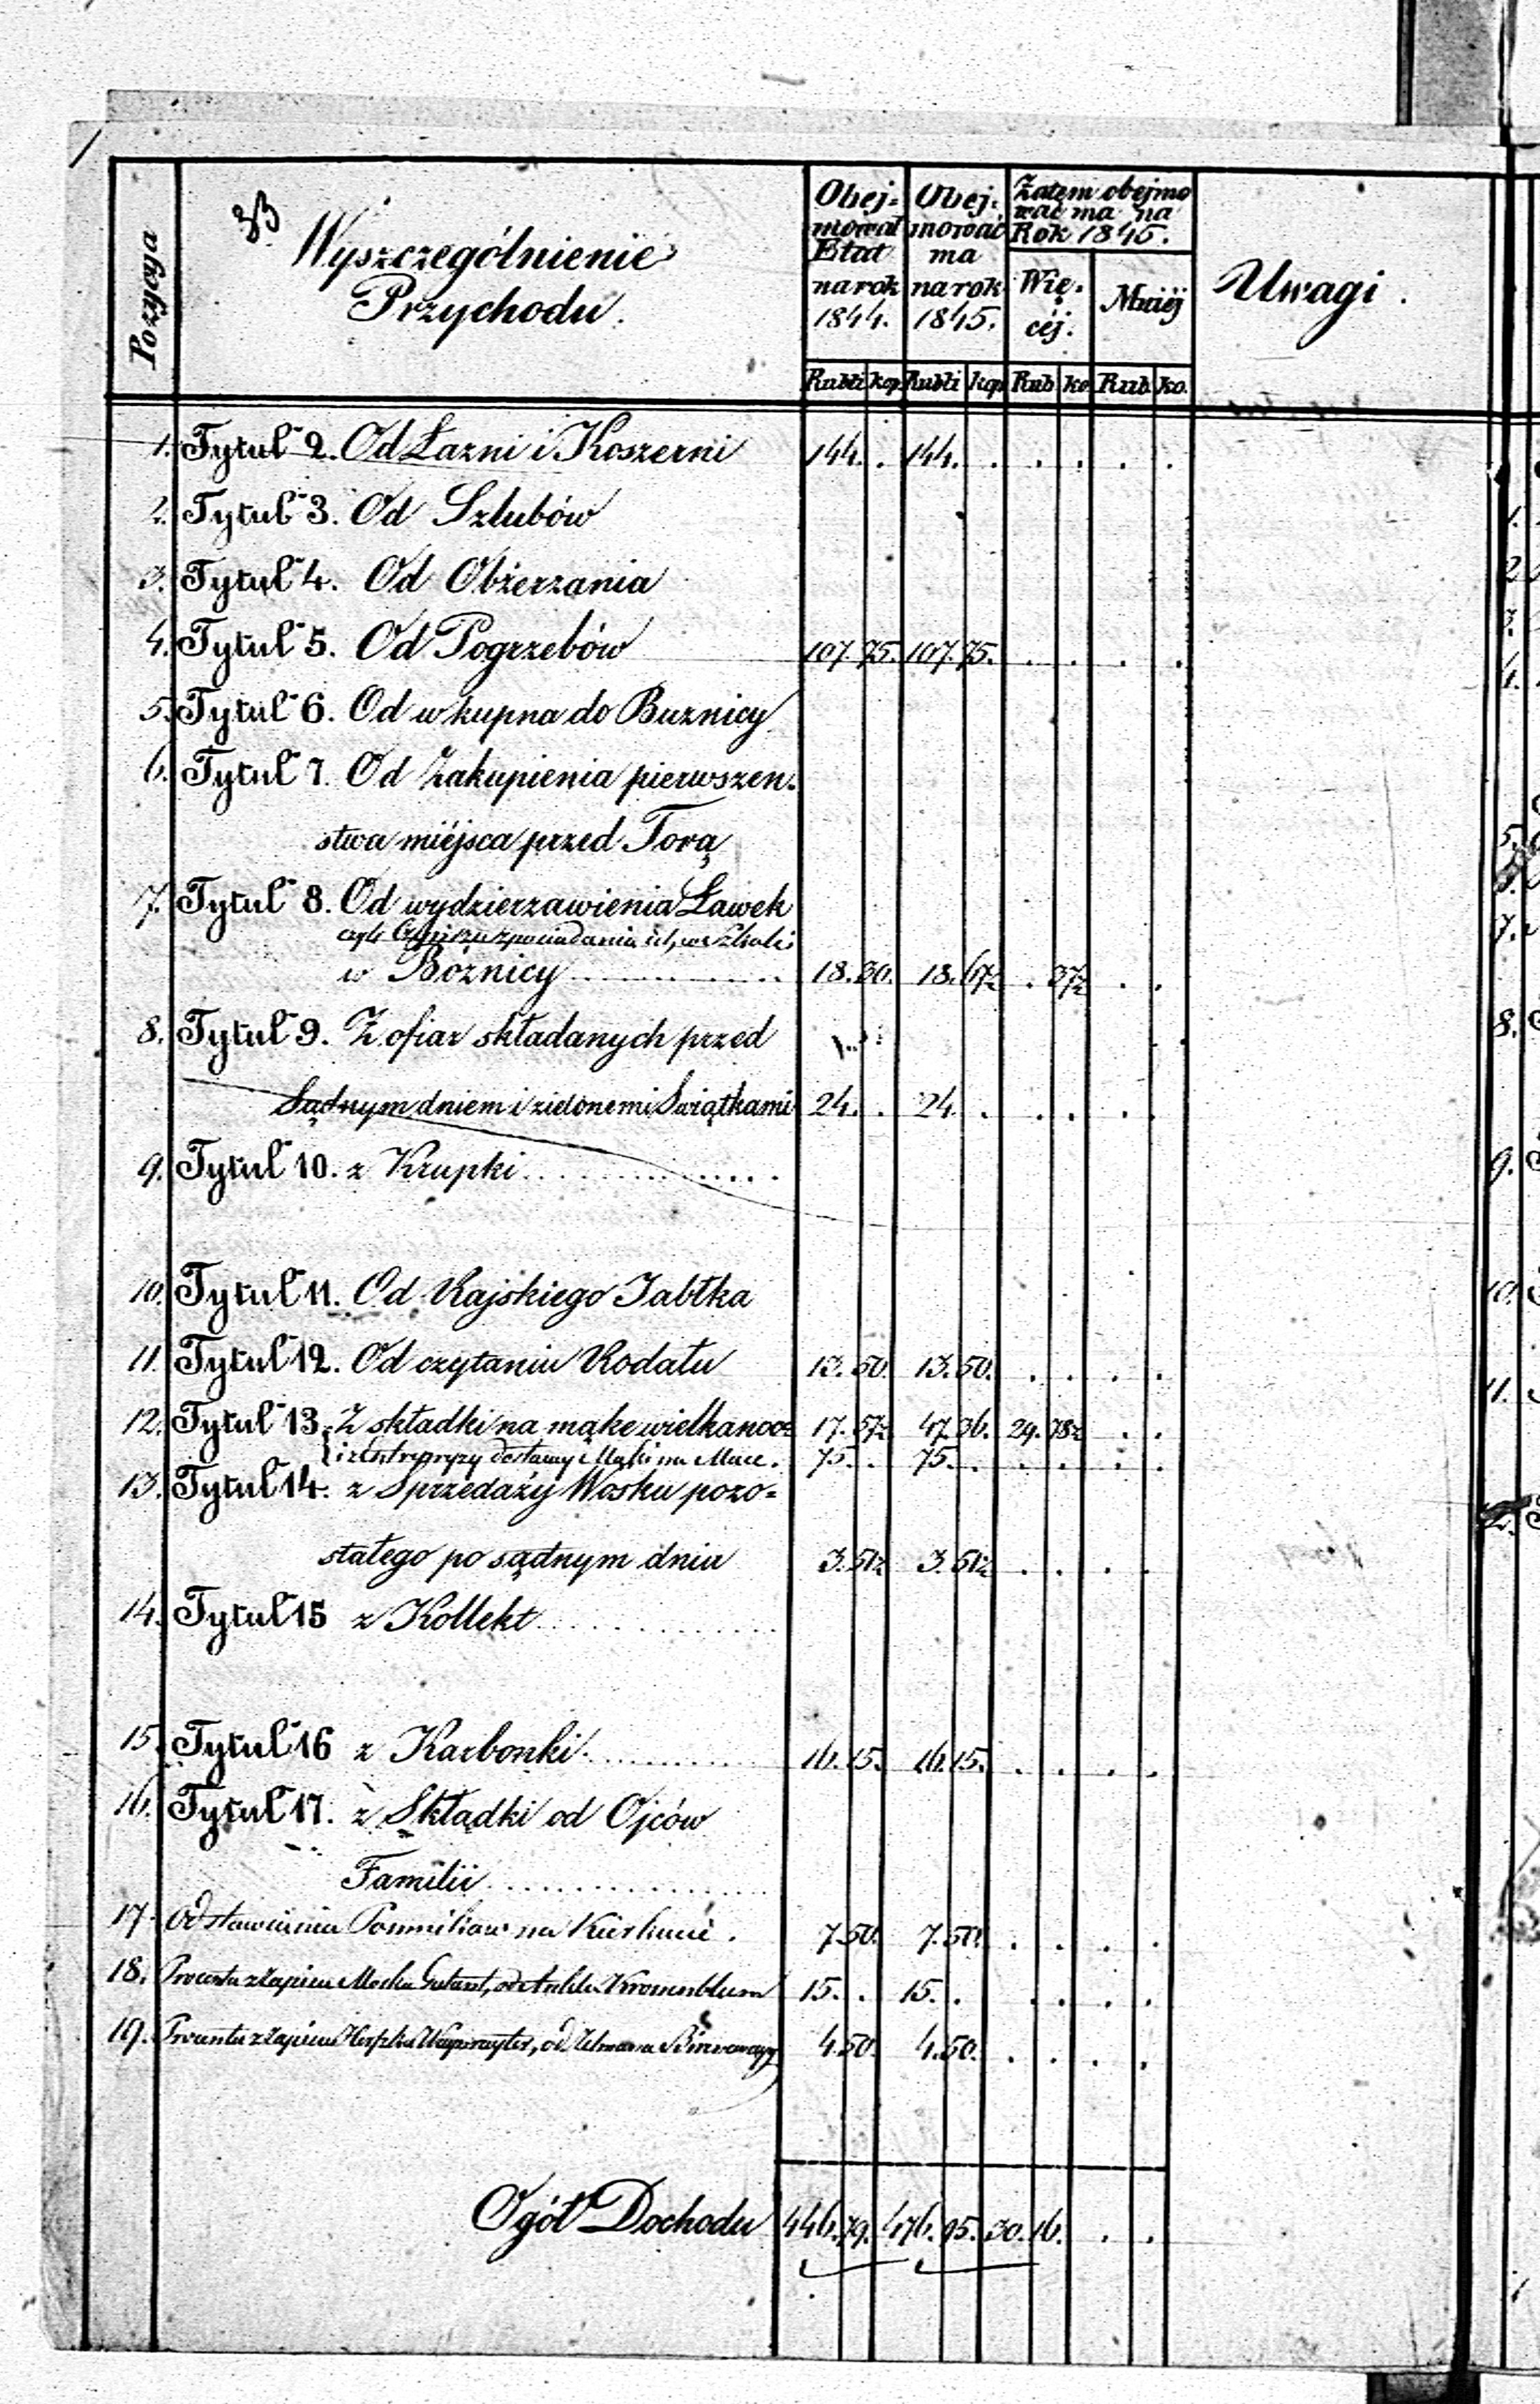 33
Pozycya
Wyszczególnienie
Przychodu.
Obej=
mował
Etat
na rok
1844.
Obej=
mować
ma
na rok
1845.
Zatem obejmo
wać ma na
Rok 1845.
Wię=
céj.
Mniéj
Uwagi.
Rubli kop. Rubli kop. Rub. ko. Rub. ko.
1. Tytuł 2. Od Łazni i Koszerni 144. . 144. . . . . .
2. Tytuł 3. Od Szlubów
3. Tytuł 4. Od Obżerzania
4. Tytuł 5. Od Pogrzebów 107. 75. 107. 75. . . . .
5. Tytuł 6. Od wkupna do Buznicy
6. Tytuł 7. Od Zakupienia pierwszen=
stwa miéjsca przed Torą
7. Tytuł 8. Od wydzierzawienia Ławek
czyli z posiadania ich, we Szkole
w Bóżnicy 18. 30. 18. 67½ . 37½ . .
8. Tytuł 9. Z ofiar składanych przed
Sądnym dniem i zielonemi Swiątkami 24. . 24. . . . . .
9. Tytuł 10. z Krupki
10. Tytuł 11. Od Rajskiego Jabłka
11. Tytuł 12. Od czytania Rodału 13. 50. 13. 50. . . . .
12. Tytuł 13. Z składki na mąke wielkanoc: 17. 57½ 47. 36. 29. 78½ . .
i z Entrepryzy dostawy Mąki na Mace. 75. . 75. . . . . .
13. Tytuł 14. z Sprzedaży Wosku pozo=
stałego po sądnym dniu 3. 51½ 3. 51½ . . . .
14. Tytuł 15 z Kollekt
15. Tytuł 16 z Karbonki 16. 15. 16. 15. . . . .
16. Tytuł 17. z Składki od Ojców
Familii
17. Od stawiania Pomników na Kirkucie. 7. 50. 7. 50. . . . .
18. Procentu z zapisu Moska od Kronenblum 15. . 15. . . . . .
19. Procentu z zapisu od Zelmana 4. 50. 4. 50. . . . .
Ogół Dochodu 446. 79. 476. 95. 30. 16. . .